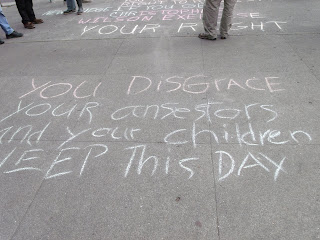 WILSON EXE
YOUR RIGHT
YOU DISGRACE
YOUR ansestors
and your children
WEEP This DAY